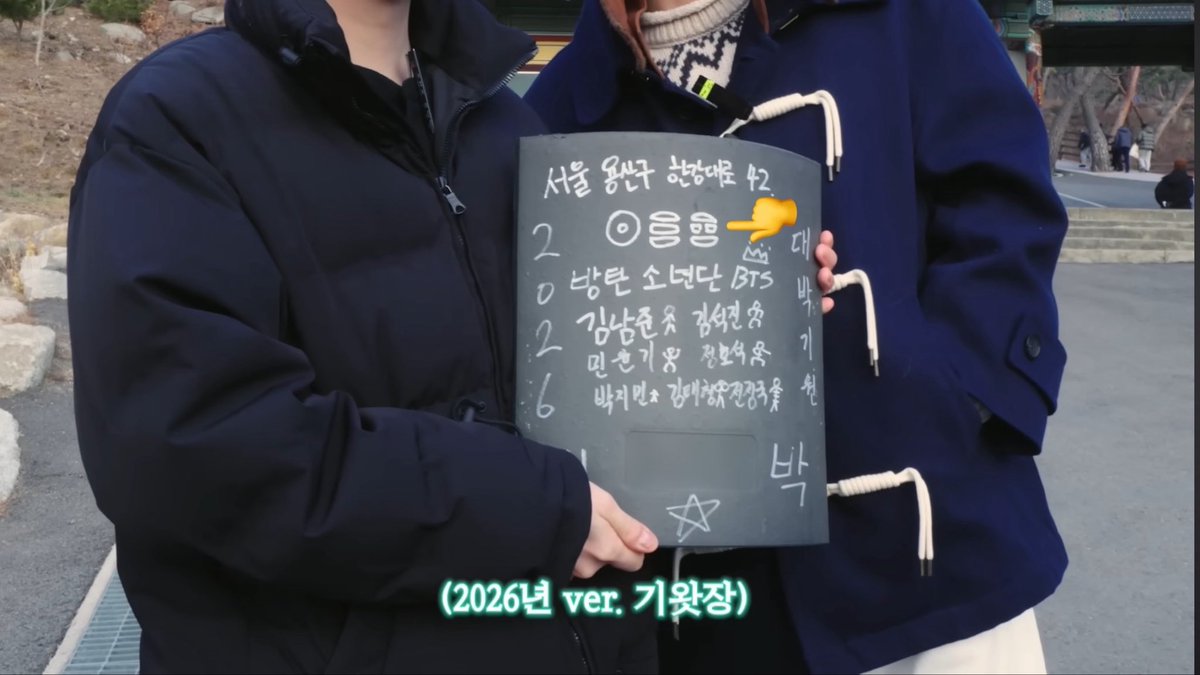 서울 용산구 한강대로 42
2026
방탄소년단 BTS
김남준 김석진
민윤기 정호석
박지민 김태형 전정국
대박기원
박
(2026년 ver. 기왓장)